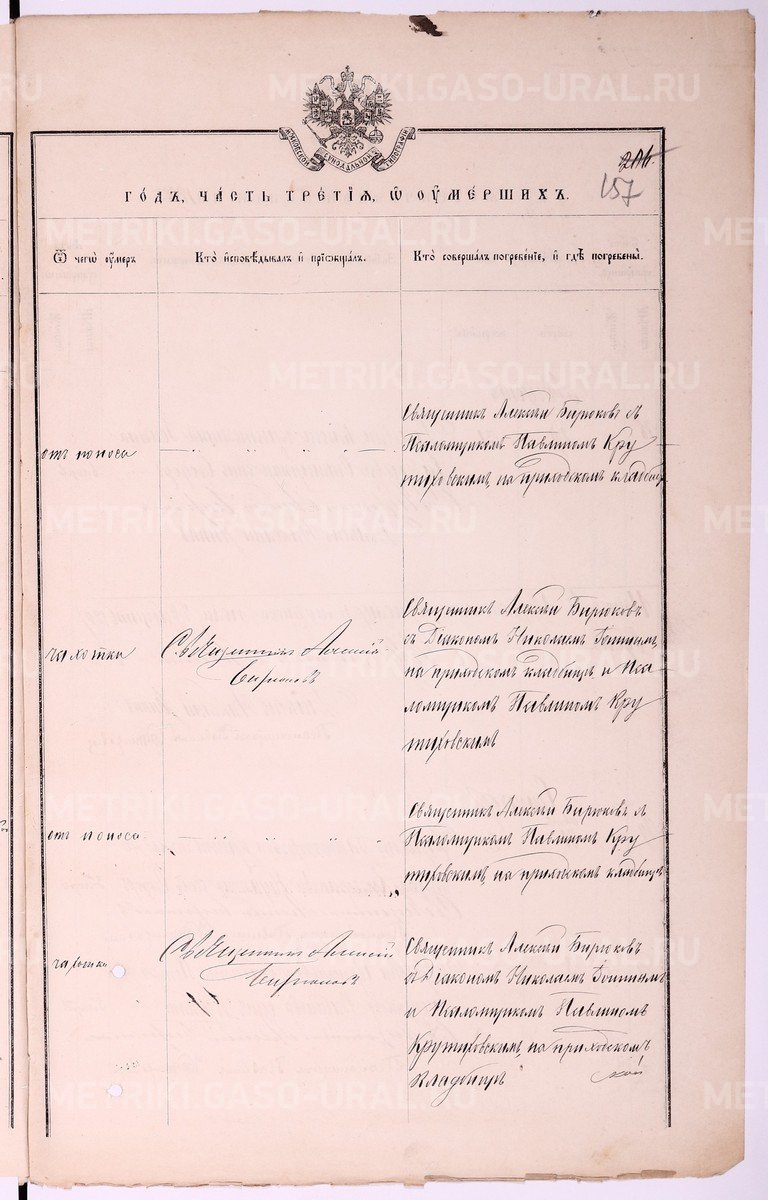 МОСКОВСКОЙ СѴНОДАЛЬНОЙ ТИПОГРАФІИ
206
157
ГО́ДЪ, ЧА́СТЬ ТРЕ́ТІѦ, Ѿ ОУ҆МЕ́РШИХЪ.
Ѿ чегѡ̀ ᲂу҆́меръ
Кто̀ и҆сповѣ́дывалъ и҆ прїѡбща́лъ.
Кто̀ соверша́лъ погребе́нїе, и҆ гдѣ̀ погребены̀.
отъ поноса
Священникъ Алексѣй Бирюковъ съ
Псаломщикомъ Павлиномъ Кру
тиховскимъ, на приходскомъ кладбищѣ
чахотки
Священникъ Алексѣй
Бирюковъ
Священникъ Алексѣй Бирюковъ
съ Діакономъ Николаемъ
на приходскомъ кладбищѣ и Пса
ломщикомъ Павлиномъ Кру
тиховскимъ
отъ поноса
Священникъ Алексѣй Бирюковъ съ
Псаломщикомъ Павлиномъ Кру
тиховскимъ, на приходскомъ кладбищѣ
чахотки
Священникъ Алексѣй
Бирюковъ
Священникъ Алексѣй Бирюковъ
съ Діакономъ Николаемъ
и Псаломщикомъ Павлиномъ
Крутиховскимъ, на приходскомъ
кладбищѣ
METRIKI.GASO-URAL.RU